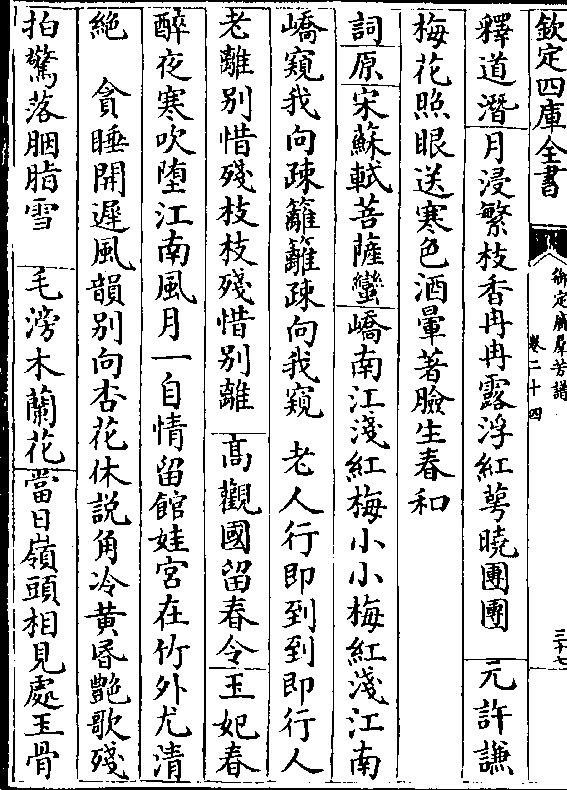 欽定四庫全書
御定廣羣芳譜
卷二十四
三十七
釋道潛月浸繁枝香冉冉露浮紅萼曉團團　元許謙
梅花照眼送寒色酒暈著臉生春和
詞原宋蘇軾菩薩蠻嶠南江淺紅梅小小梅紅淺江南
嶠窺我向疎籬籬疎向我窺　老人行即到到即行人
老離别惜殘枝枝殘惜别離　高觀國留春令玉妃春
醉夜寒吹堕江南風月一自情留館娃宮在竹外尤清
絶　貪睡開遲風韻别向杏花休説角冷黄昬艷歌殘
拍驚落胭脂雪　毛滂木蘭花當日嶺頭相見處玉骨